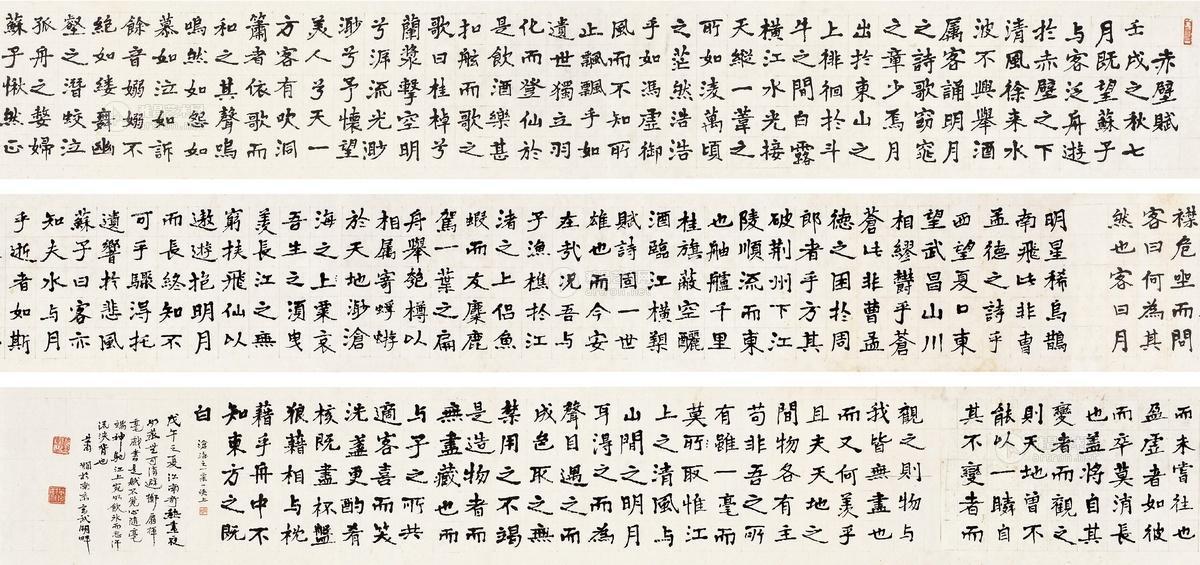 赤壁賦
壬戌之秋七
月既望蘇子
与客泛舟遊
於赤壁之下
清風徐来水
波不興舉酒
属客誦明月
之詩歌窈窕
之章少焉月
出於東山之
上徘徊於斗
牛之間白露
横江水光接
天縱一葦之
所如淩萬頃
之茫然浩浩
乎如馮虚御
風而不知所
止飄飄乎如
遺世獨立羽
化而登仙於
是飲酒樂甚
扣舷而歌之
歌曰桂棹兮
蘭槳擊空明
兮泝流光渺
渺兮予懷望
美人兮天一
方客有吹洞
簫者依歌而
和之其聲嗚
嗚然如怨如
慕如泣如訴
餘音嫋嫋不
絶如縷舞幽
壑之潜蛟泣
孤舟之嫠婦
蘇子愀然正
襟危坐而問
客曰何為其
然也客曰月
明星稀烏鵲
南飛此非曹
孟德之詩乎
西望夏口東
望武昌山川
相繆鬱乎蒼
蒼此非曹孟
德之困於周
郎者乎方其
破荆州下江
陵順流而東
也舳艫千里
旗蔽空釃
酒臨江横槊
賦詩固一世
雄也而今安
在哉况吾与
子漁樵於江
渚之上侣魚
蝦而友麋鹿
駕一葉之扁
舟舉匏樽以
相属寄蜉蝣
於天地渺滄
海之粟哀
吾生之須曳
羨長江之無
窮挾飛仙以
遨遊抱明月
而長終知不
可乎驟得托
遺響於悲風
蘇子曰客亦
知夫水与月
乎逝者如斯
而未嘗往也
盈虚者如彼
而卒莫消長
也盖将自其
變者而觀之
則天地曾不
能以一瞬自
其不變者而
觀之則物与
我皆無盡也
而又何羨乎
且夫天地之
間物各有主
苟非吾之所
有雖一毫而
莫所取惟江
上之清風与
山間之明月
耳得之而為
聲目遇之而
成色取之無
禁用之不竭
是造物者之
無盡藏也而
与子之所共
適客喜而笑
洗盞更酌肴
核既盡杯盤
狼藉相与枕
藉乎舟中不
知東方之既
白
戊午之夏江南奇熱晝夜
蕭嫻於南京玄武湖畔